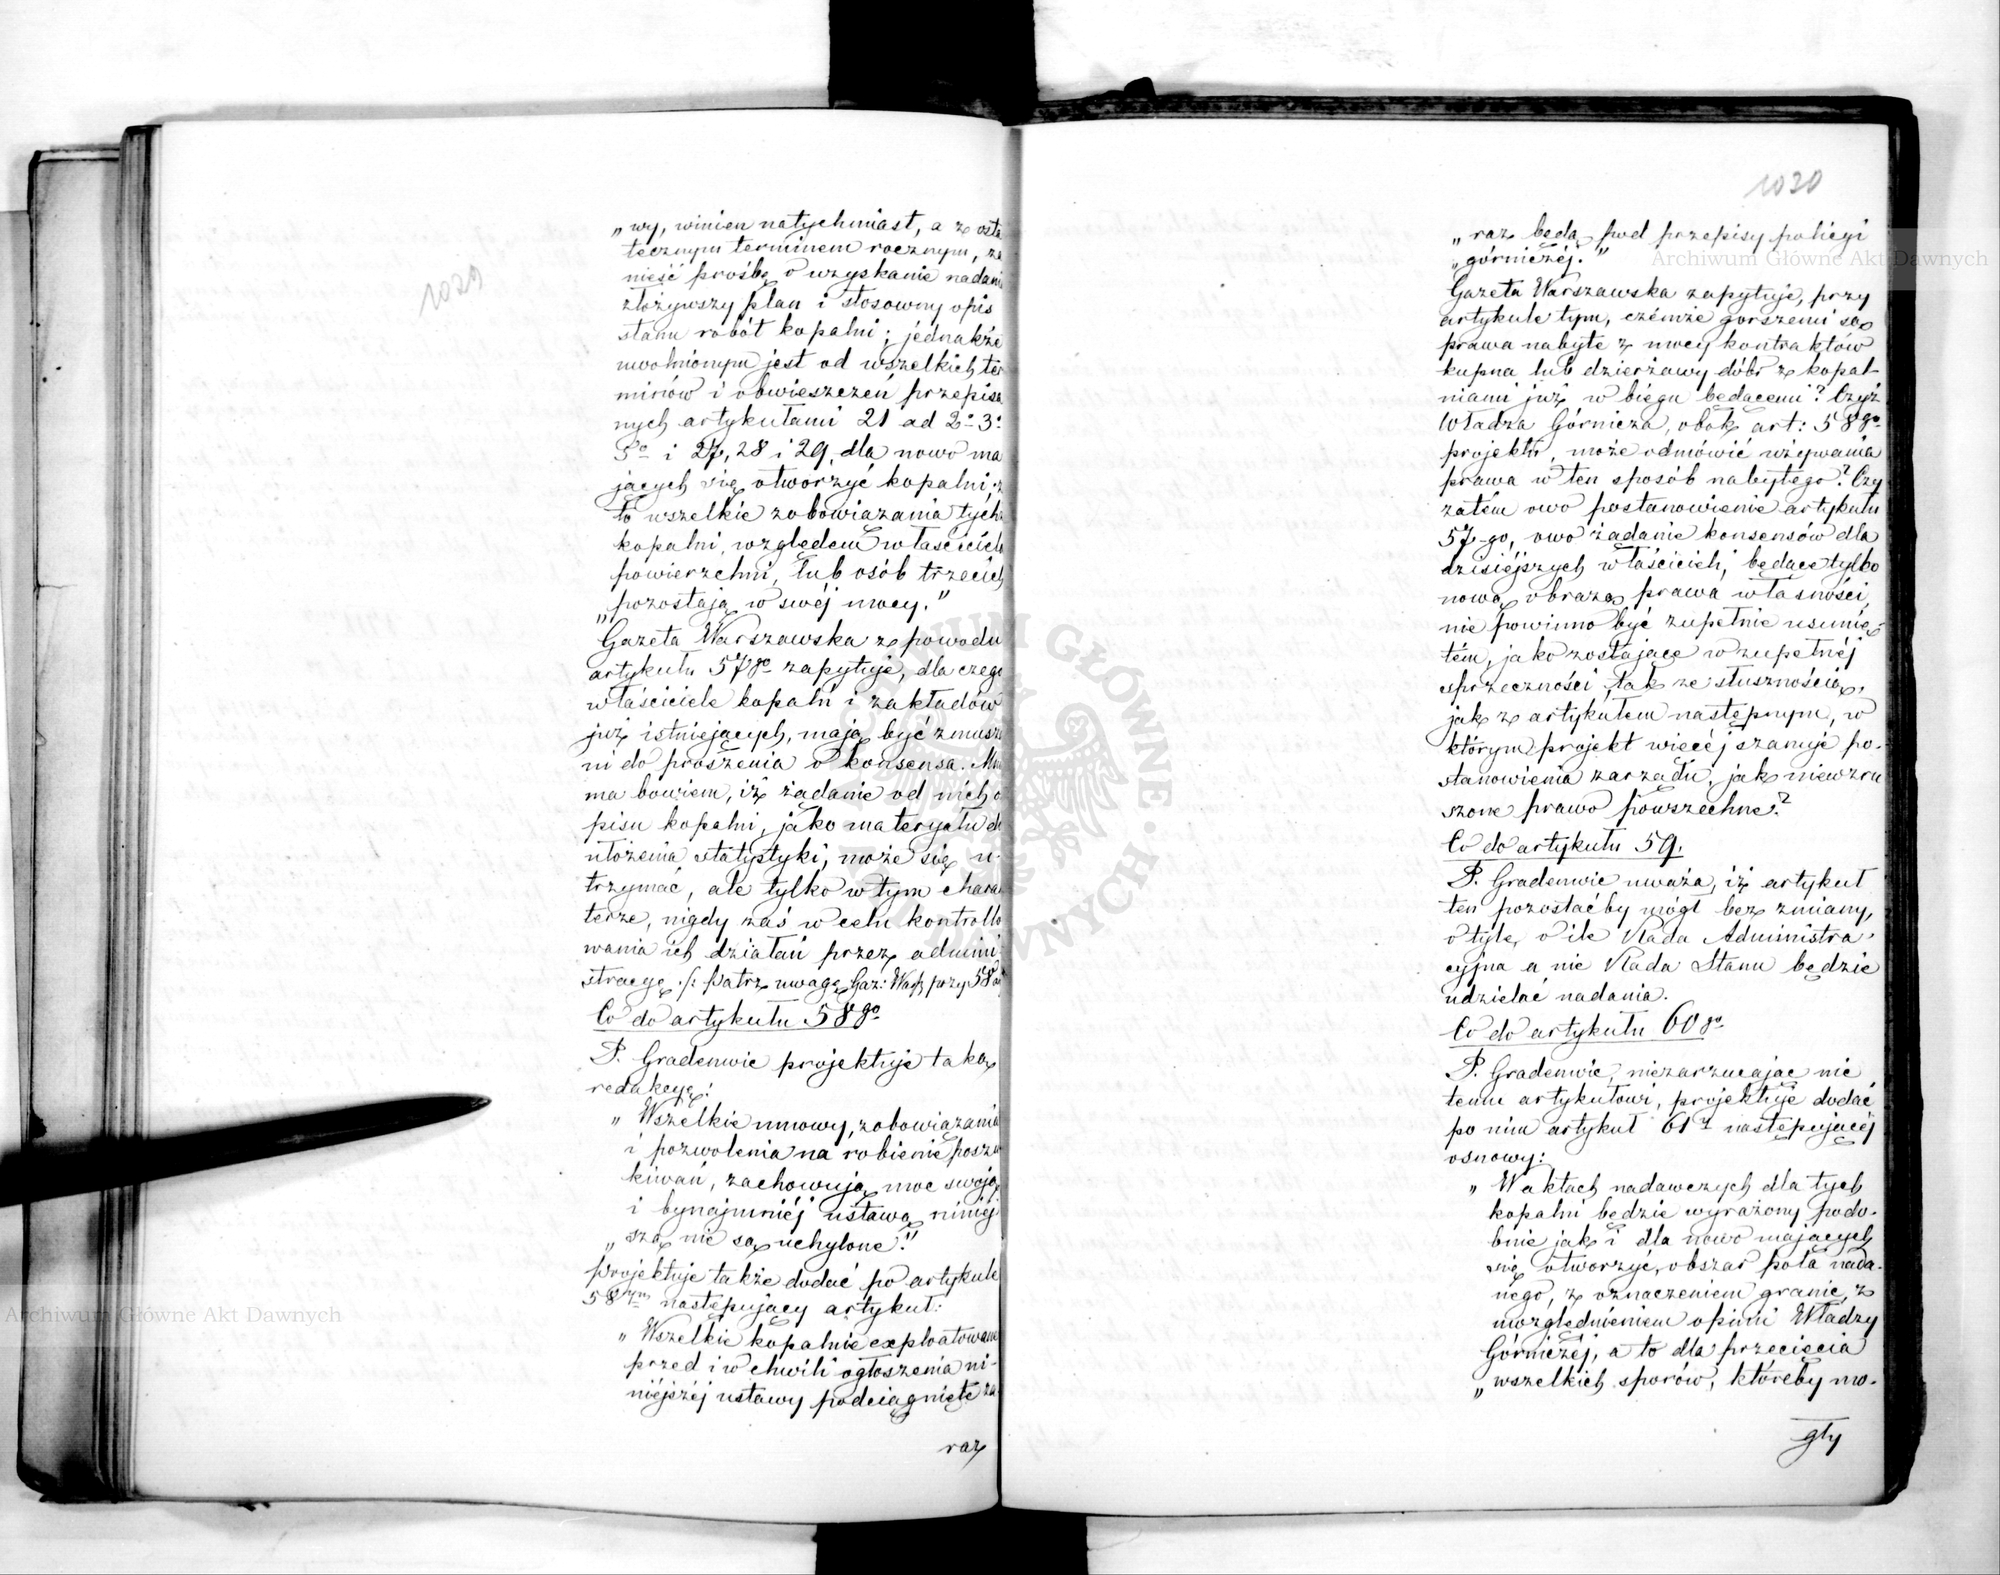 1029
„wy, winien natychmiast, a z osta
tecznym terminem rocznym, za
nieść prośbę o uzyskanie nadani
złożywszy plan i stosowny opis
stanu robót kopalni; jednakże
uwolnionym jest od wszelkich ter
minów i obwieszczeń przepisa
nych artykułami 21 ad 2º 3º
5º i 27, 28 i 29, dla nowo ma
jących się otworzyć kopalni; z
to wszelkie zobowiązania tych
kopalni, względem właścicieli
powierzchni, lub osób trzecich
„pozostają w swéj mocy.”
Gazeta Warszawska z powodu
artykułu 57go zapytuje, dla czego
właściciele kopalń i zakładów
już istniejących, mają być zmusze
ni do proszenia o konsensa. Mnie
ma bowiem, iż żądanie od nich o
pisu kopalni, jako materyału do
ułożenia statystyki, może się u-
trzymać, ale tylko w tym charak
terze, nigdy zaś w celu kontrollo
wania ich działań przez admini
stracyę ./: Patrz uwagę Gaz: Warsz przy 58
Co do artykułu 58go
P. Gradenwic projektuje taką
redakcyę:
„Wszelkie umowy, zobowiązania
i pozwolenia na robienie poszu
kiwań, zachowują moc swoją
i bynajmniéj ustawą niniej
„szą nie są uchylone.”
Projektuje także dodać po artykule
58ym następujący artykuł:
„Wszelkie kopalnie exploatowane
przed i w chwili ogłoszenia ni-
niéjszéj ustawy podciągnięte za-
raz
1030
„raz będą pod przepisy policyi
„górniczéj.”
Gazeta Warszawska zapytuje, przy
artykule tym, czémże gorszemi są
prawa nabyte z mocy kontraktów
kupna lub dzierżawy dóbr z kopal-
niami już w biegu będącemi? Czyż
Władza Górnicza, obok art: 58go
projektu, może odmówić używania
prawa w ten sposób nabytego? Czy
zatém owo postanowienie artykułu
57-go, owo żądanie konsensów dla
dzisiéjszych właścicieli, będące tylko
nową obrazą prawa własności,
nie powinno być zupełnie usunię-
tém, jako zostające w zupełnéj
sprzeczności, tak ze słusznością,
jak z artykułem następnym, w
którym projekt więcéj szanuje po-
stanowienia zarządu, jak niewzru
szone prawo powszechne?
Co do artykułu 59.
P. Gradenwic uważa, iż artykuł
ten pozostaćby mógł bez zmiany,
o tyle, o ile Rada Administra-
cyjna a nie Rada Stanu będzie
udzielać nadania.
Co do artykułu 60go
P. Gradenwic, niezarzucając nic
temu artykułowi, projektuje dodać
po nim artykuł 61y następującéj
osnowy:
„W aktach nadawczych dla tych
kopalni będzie wyrażony podo-
bnie jak i dla nowo mających
się otworzyć, obszar pola nada-
nego, z oznaczeniem granic, z
uwzględnieniem opinii Władzy
Górniczéj, a to dla przecięcia
„wszelkich sporów, któreby mo-
gły
Archiwum Główne Akt Dawnych
Archiwum Główne Akt Dawnych
ARCHIWUM GŁÓWNE AKT DAWNYCH